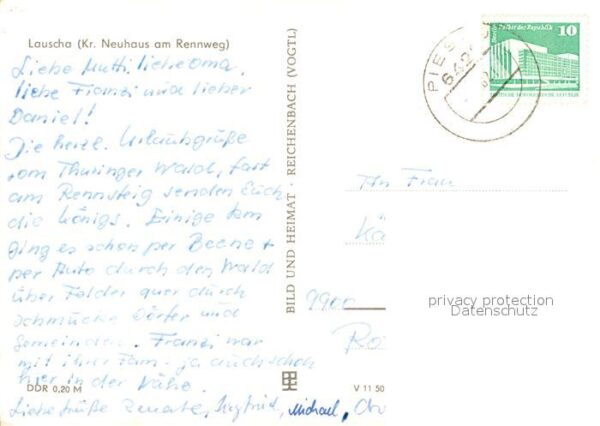 Lauscha (Kr. Neuhaus am Rennweg)
Liebe Mutti, liebe Oma,
liebe Franzi und lieber
Daniel!
Die herzl. Urlaubsgrüße
vom Thüringer Wald, fast
am Rennsteig senden Euch
die Königs. Einige km
ging es schon per Beene +
per Auto durch den Wald
über Felder quer durch
schmucke Dörfer und
Gemeinden. Franzi war
mit ihrer Fam. ja auch schon
hier in der Nähe.
DDR 0,20 M
V 11 50
Liebe Grüße Renate, Michael,
BILD UND HEIMAT · REICHENBACH (VOGTL)
Palast der Republik
10
PIES
642
An Frau
Kä
9900
privacy protection
Datenschutz